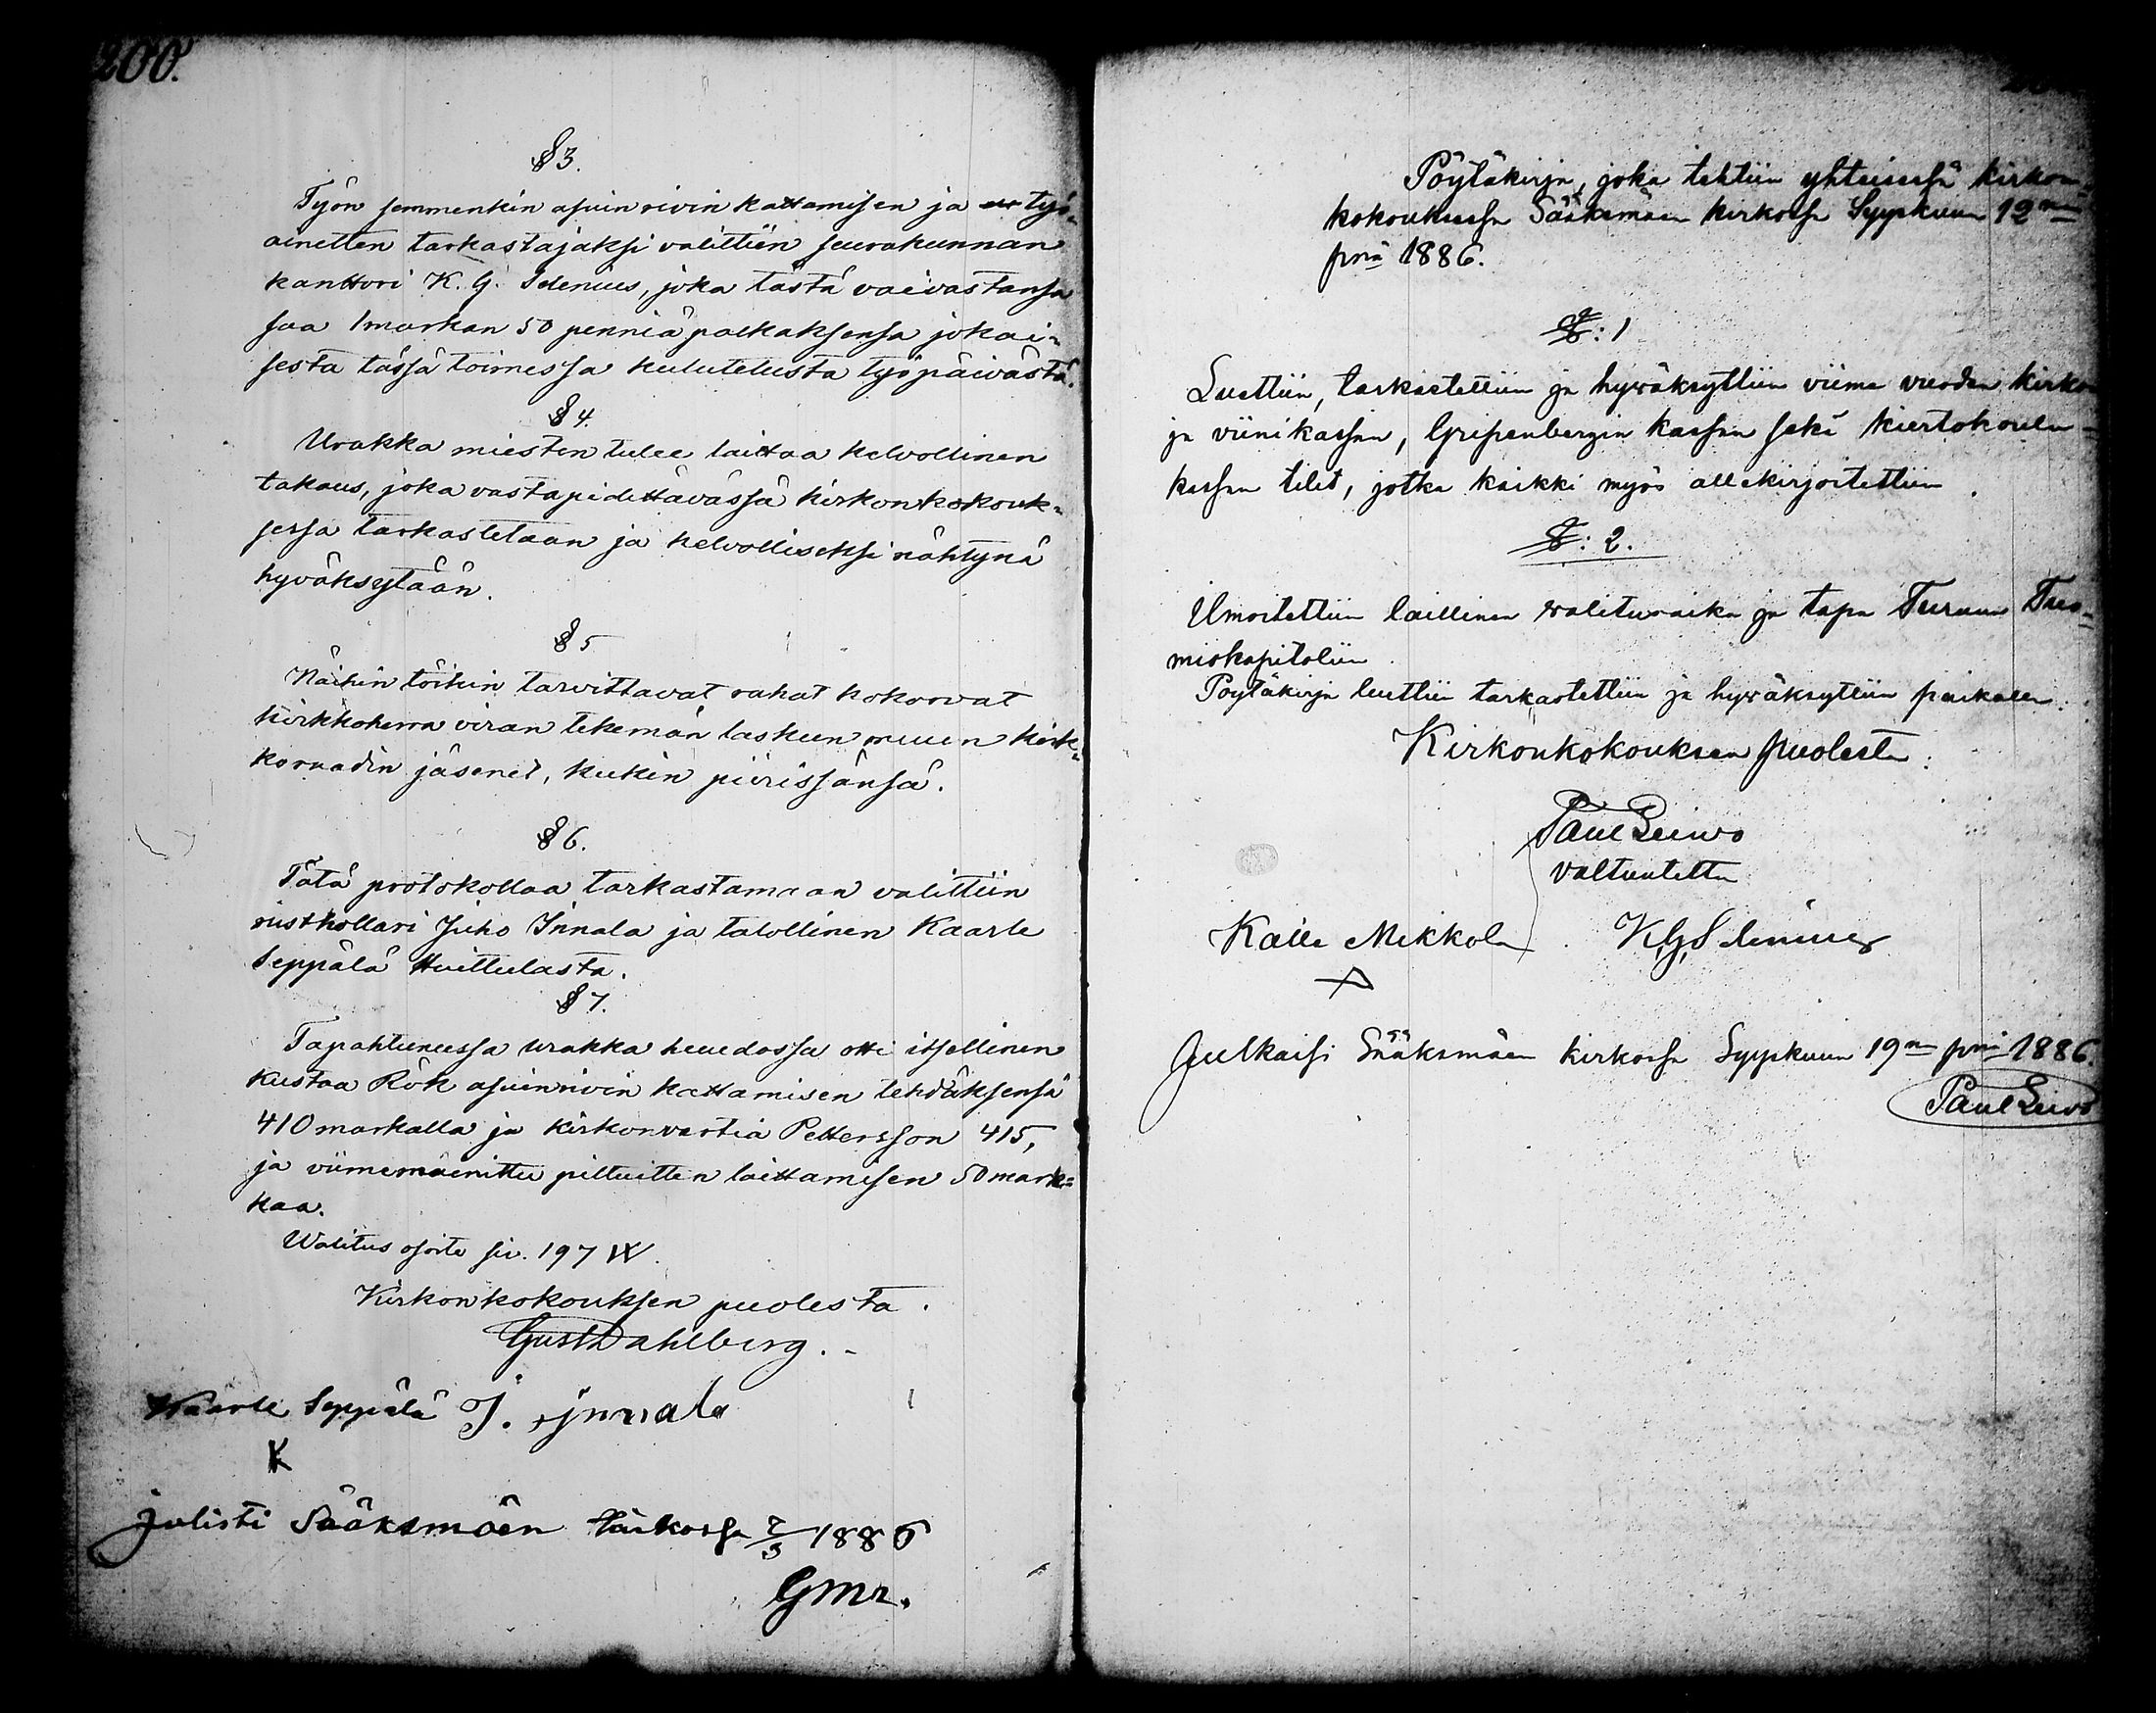 200.
§ 3.
Työn semmenkin asuinrivin kattamisen ja työ-
ainetten tarkastajaksi valittiin seurakunnan
kanttori K. G. Idenius, joka tästä vaivastansa
saa 1 markan 50 penniä palkaksensa jokai-
sesta tässä toimessa kulutelusta työpäivästä.
§ 4.
Urakka miesten tulee laittaa kelvollinen
takaus, joka vastapidettävässä kirkonkokouk-
sessa tarkastetaan ja kelvolliseksi nähtynä
hyväksytään.
§ 5
Näihin töihin tarvittavat rahat kokoovat
kirkkoherra viran tekemän laskun muun kirk-
koraadin jäsenet, kukin piirissänsä.
§ 6.
Tätä protokollaa tarkastamaan valittiin
rustkollari Juho Innala ja talollinen Kaarle
Seppälä Huittulasta.
§ 7.
Tapahtuneessa urakka huudossa otti itsellinen
Kustaa Rök asuinrivin kattamisen tehdäksensä
410 markalla ja kirkonvartia Pettersson 415,
ja viimemainittu pilttuitten laittamisen 50 mark-
kaa.
Walitus osoite siv. 197 IV.
Kirkonkokouksen puolesta.
Gust Dahlberg.
Kaarle Seppälä J. Innala
K
Julisti Sääksmäen kirkossa 7/3 1886
Gmr.
Pöytäkirja, joka tehtiin yhteisessä kirkon-
kokouksessa Sääksmäen kirkossa Syyskuun 12 n
pnä 1886.
§: 1
Luettiin, tarkastettiin ja hyväksyttiin viime vuoden kirkon
ja viinikassan, Gripenbergin kassan sekä kiertokoulu-
kassan tilit, jotka kaikki myös allekirjoitettiin.
§: 2.
Ilmoitettiin laillinen valitusaika ja tapa Turun Tuo-
miokapitoliin.
Pöytäkirja luettiin tarkastettiin ja hyväksyttiin paikalla.
Kirkonkokouksen puolesta:
Paul Leiwo
valtuutettu
Kalle Mikkola K. G. Idenius
Julkaisi Sääksmäen kirkossa Syyskuun 19 n pnä 1886.
Paul Leiwo